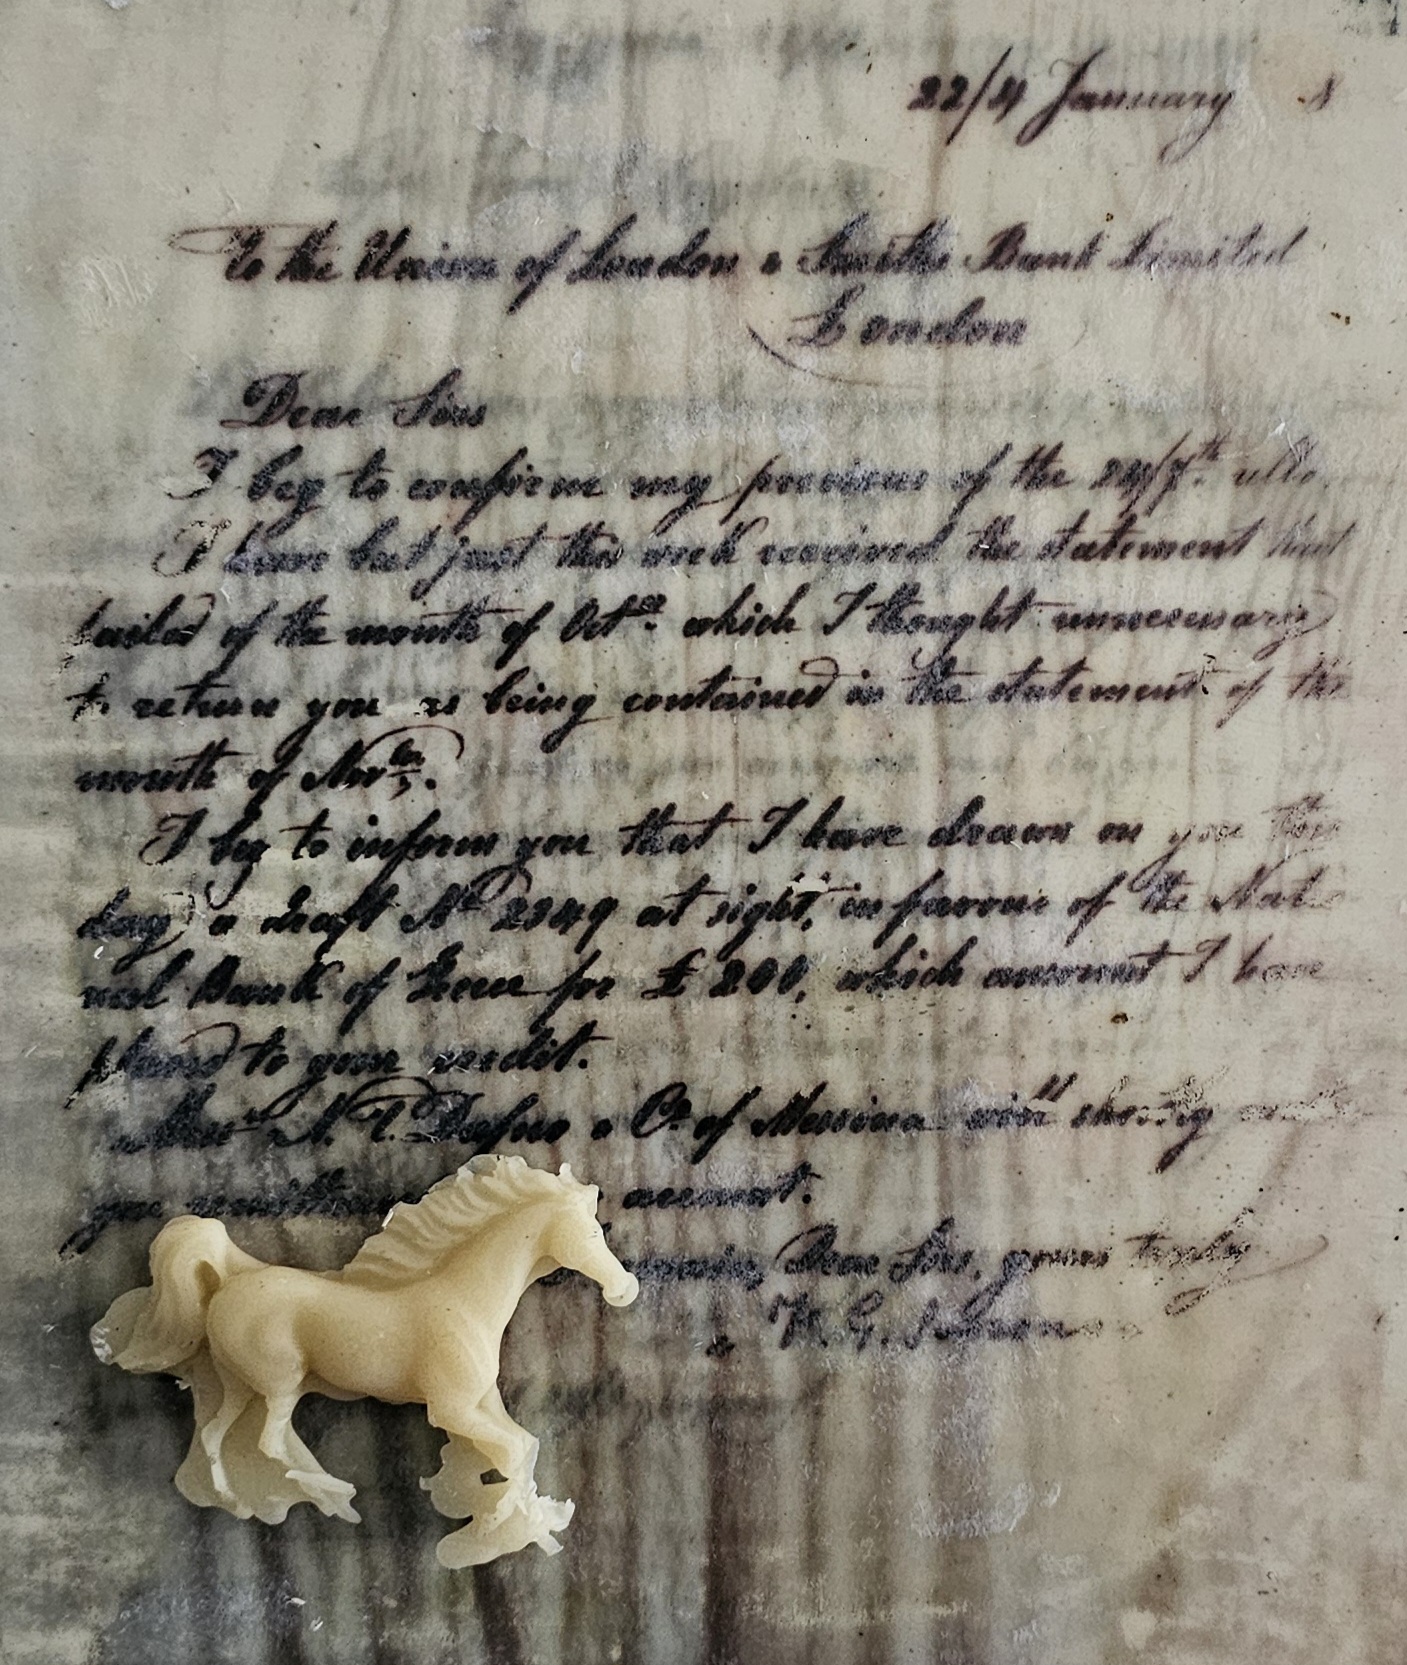 22/4 January 8
To the Union of London & Smiths Bank Limited
London
Dear Sirs
I beg to confirm my previous of the 24/7th ulto.
I have but just this week received the statement
of the month of Octer which I thought unnecessary
to return you as being contained in the statement of the
month of Novber.
I beg to inform you that I have drawn on you this
day a draft No 2349 at sight, in favour of the Natio
nal Bank of Greece for £ 200, which amount I have
placed to your credit.
Messrs N. T. & Co. of Messina will shortly
you account.
Dear Sirs, yours truly